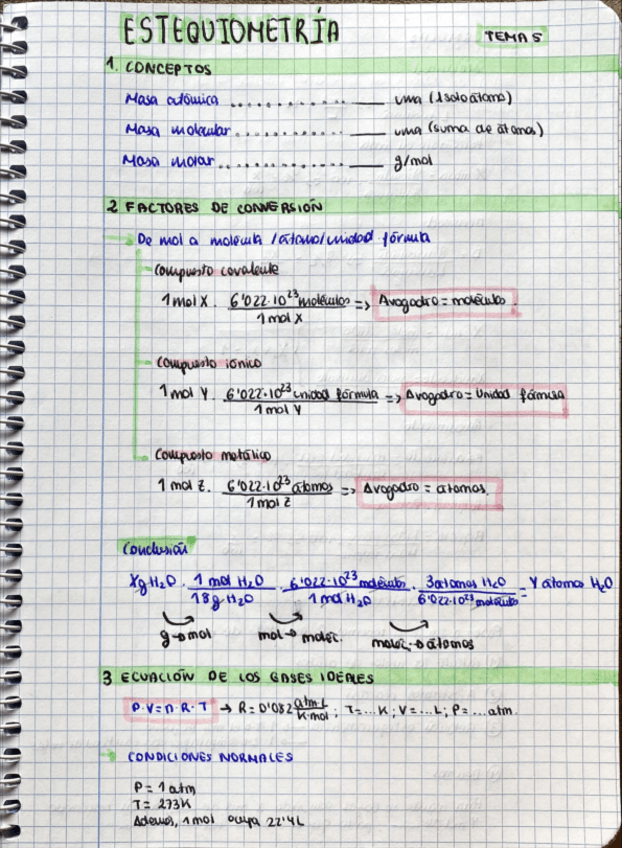 ESTEQUIOMETRÍA
TEMA 5
1. CONCEPTOS
Masa atómica ............... ____ uma (1 solo átomo)
Masa molecular ............... ____ uma (suma de átomos)
Masa molar ............... ____ g/mol
2 FACTORES DE CONVERSIÓN
De mol a molécula / átomo / unidad fórmula
Compuesto covalente
1 mol X . 6'022·10²³ moléculas / 1 mol X => Avogadro = moléculas.
Compuesto iónico
1 mol Y . 6'022·10²³ unidad fórmula / 1 mol Y => Avogadro = Unidad fórmula
Compuesto metálico
1 mol Z . 6'022·10²³ átomos / 1 mol Z => Avogadro = átomos.
Conclusión
Xg H₂O . 1 mol H₂O / 18g H₂O . 6'022·10²³ moléculas / 1 mol H₂O . 3 átomos H₂O / 6'022·10²³ moléculas = Y átomos H₂O
g→mol mol→moléc. moléc.→átomos
3 ECUACIÓN DE LOS GASES IDEALES
P·V=n·R·T → R=0'082 atm·L / K·mol ; T=...K ; V=...L ; P=...atm.
→ CONDICIONES NORMALES
P = 1 atm
T = 273K
Además, 1 mol ocupa 22'4L